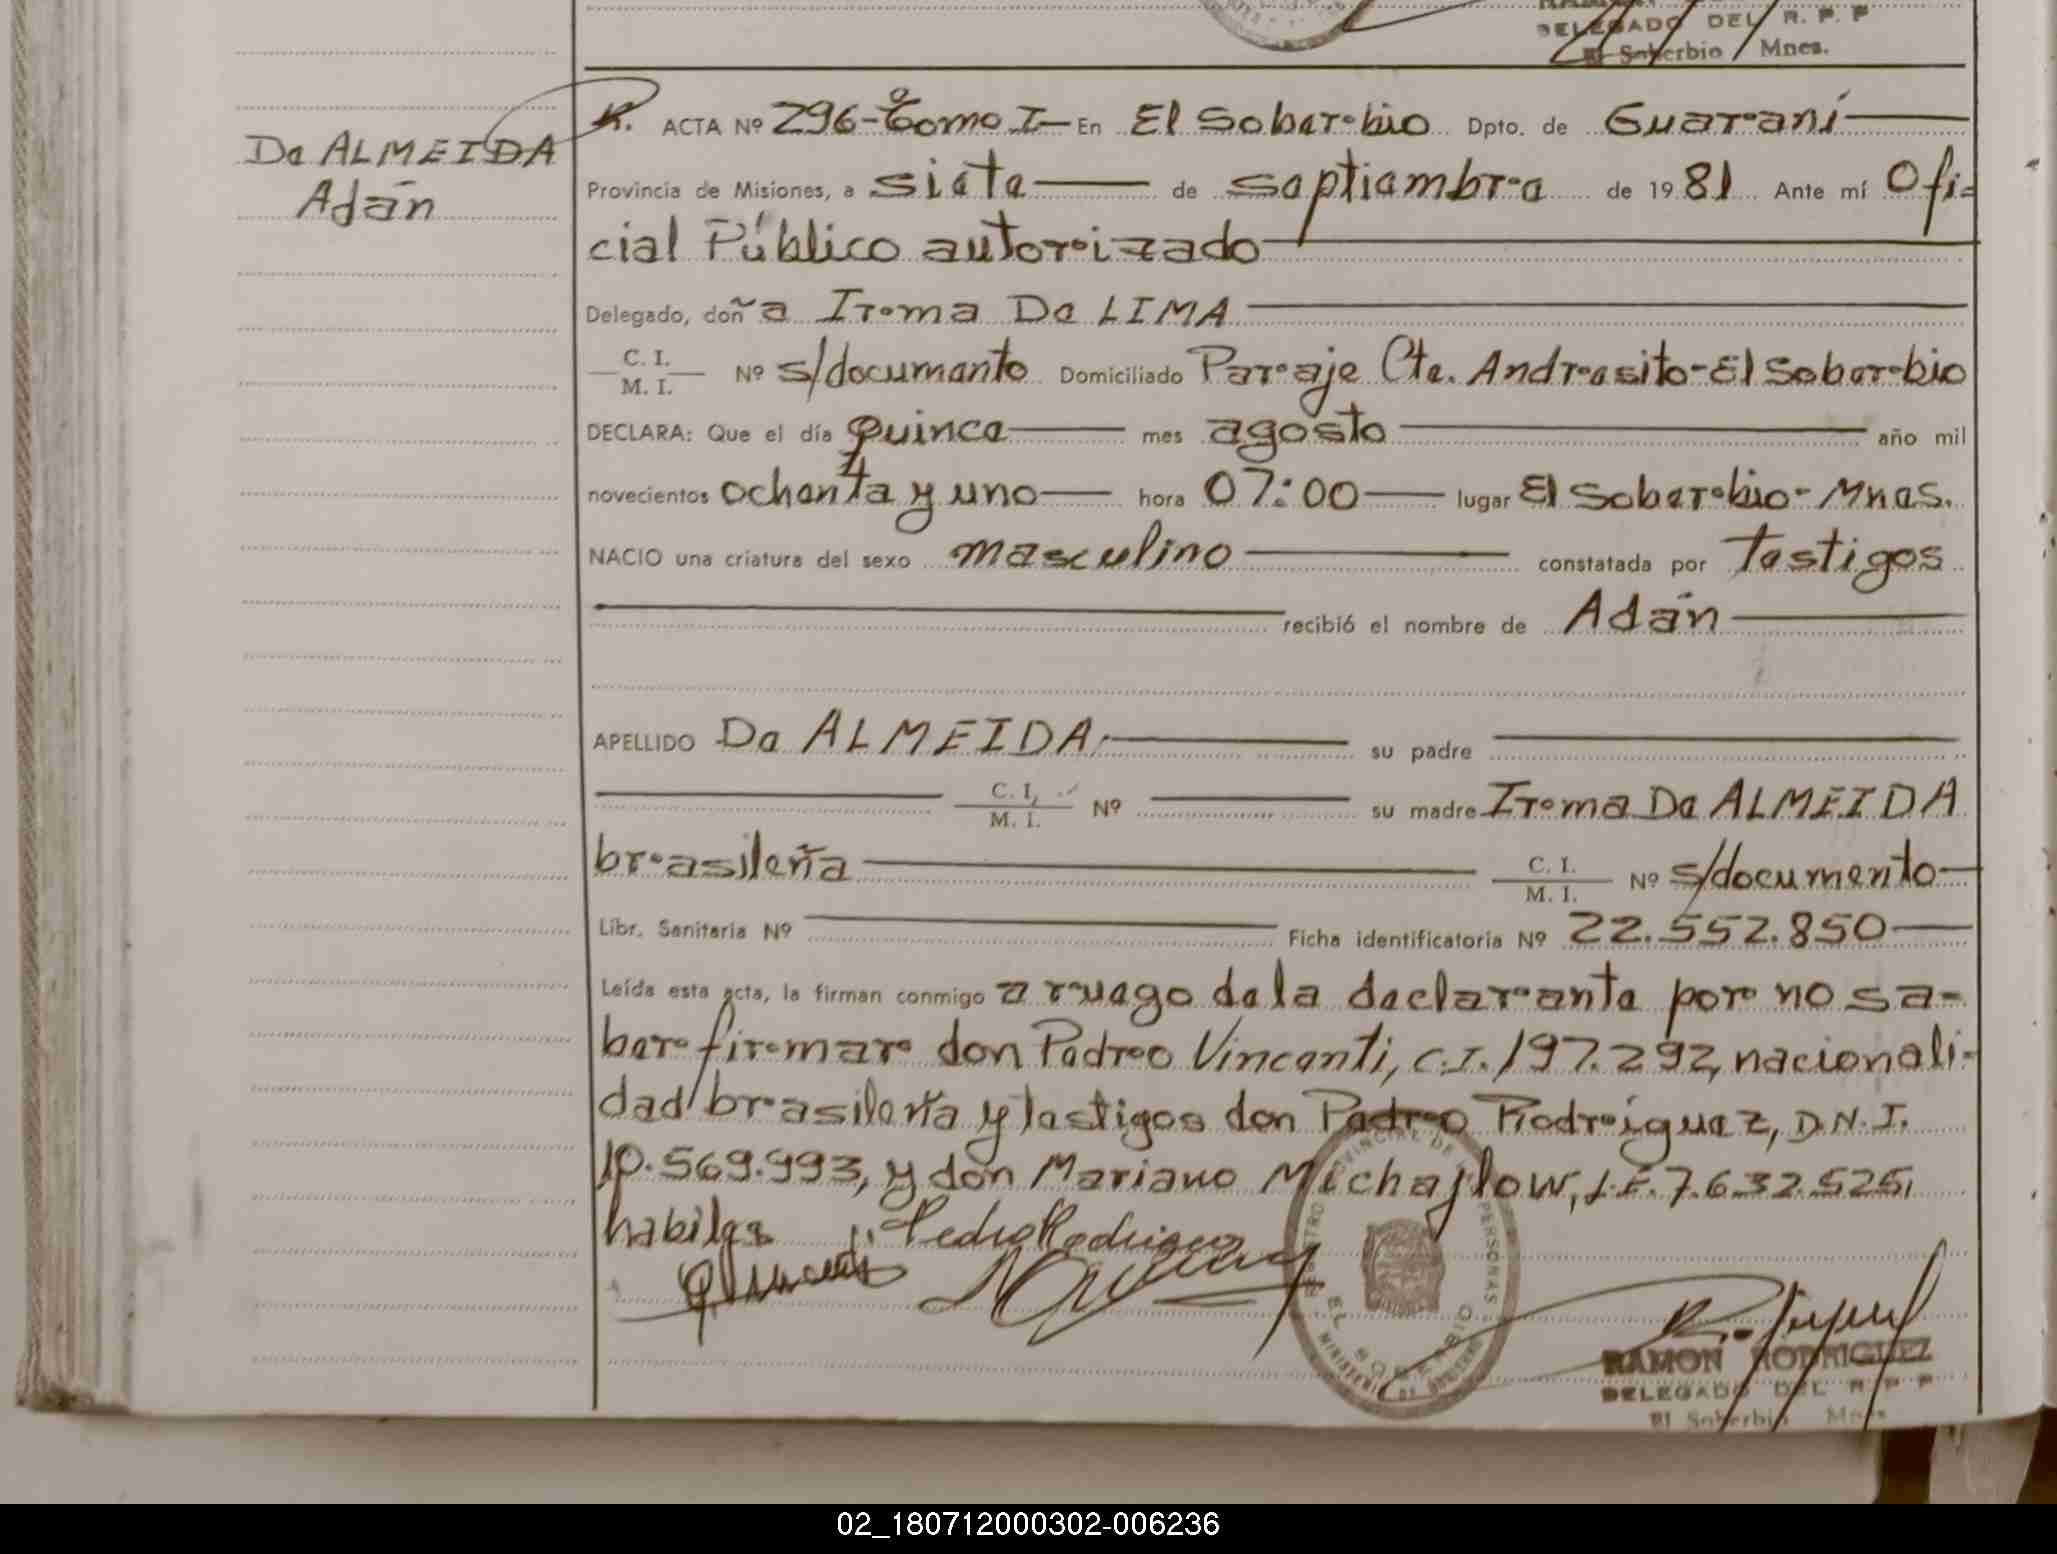 DELEGADO DEL R. P. P
El Soberbio Mnes.
De ALMEIDA
Adán
R. ACTA Nº 296-Tomo I- En El Soberbio Dpto. de Guaraní
Provincia de Misiones, a siete de septiembre de 1981 Ante mí Ofi-
cial Público autorizado
Delegado, doña Irma De LIMA
C. I.
M. I. Nº s/documento Domiciliado Paraje Cte. Andresito-El Soberbio
DECLARA: Que el día quince mes agosto año mil
novecientos ochenta y uno hora 07:00 lugar El Soberbio-Mnes.
NACIO una criatura del sexo masculino constatada por testigos
recibió el nombre de Adán
APELLIDO De ALMEIDA su padre
C. I.
M. I. Nº su madre Irma De ALMEIDA
brasileña C. I.
M. I. Nº s/documento
Libr. Sanitaria Nº Ficha identificatoria Nº 22.552.850
Leída esta acta, la firman conmigo a ruego de la declarante por no sa-
ber firmar don Pedro Vincenti, C.I. 197.292, nacionali-
dad brasileña y testigos don Pedro Rodríguez, D.N.I.
10.569.993, y don Mariano Michajlow, L.E. 7.632.525,
habiles Pedro Rodriguez
REGISTRO PROVINCIAL DE PERSONAS
EL SOBERBIO
MINISTERIO DE GOBIERNO
RAMON RODRIGUEZ
DELEGADO DEL R P P
El Soberbio Mnes
02_180712000302-006236